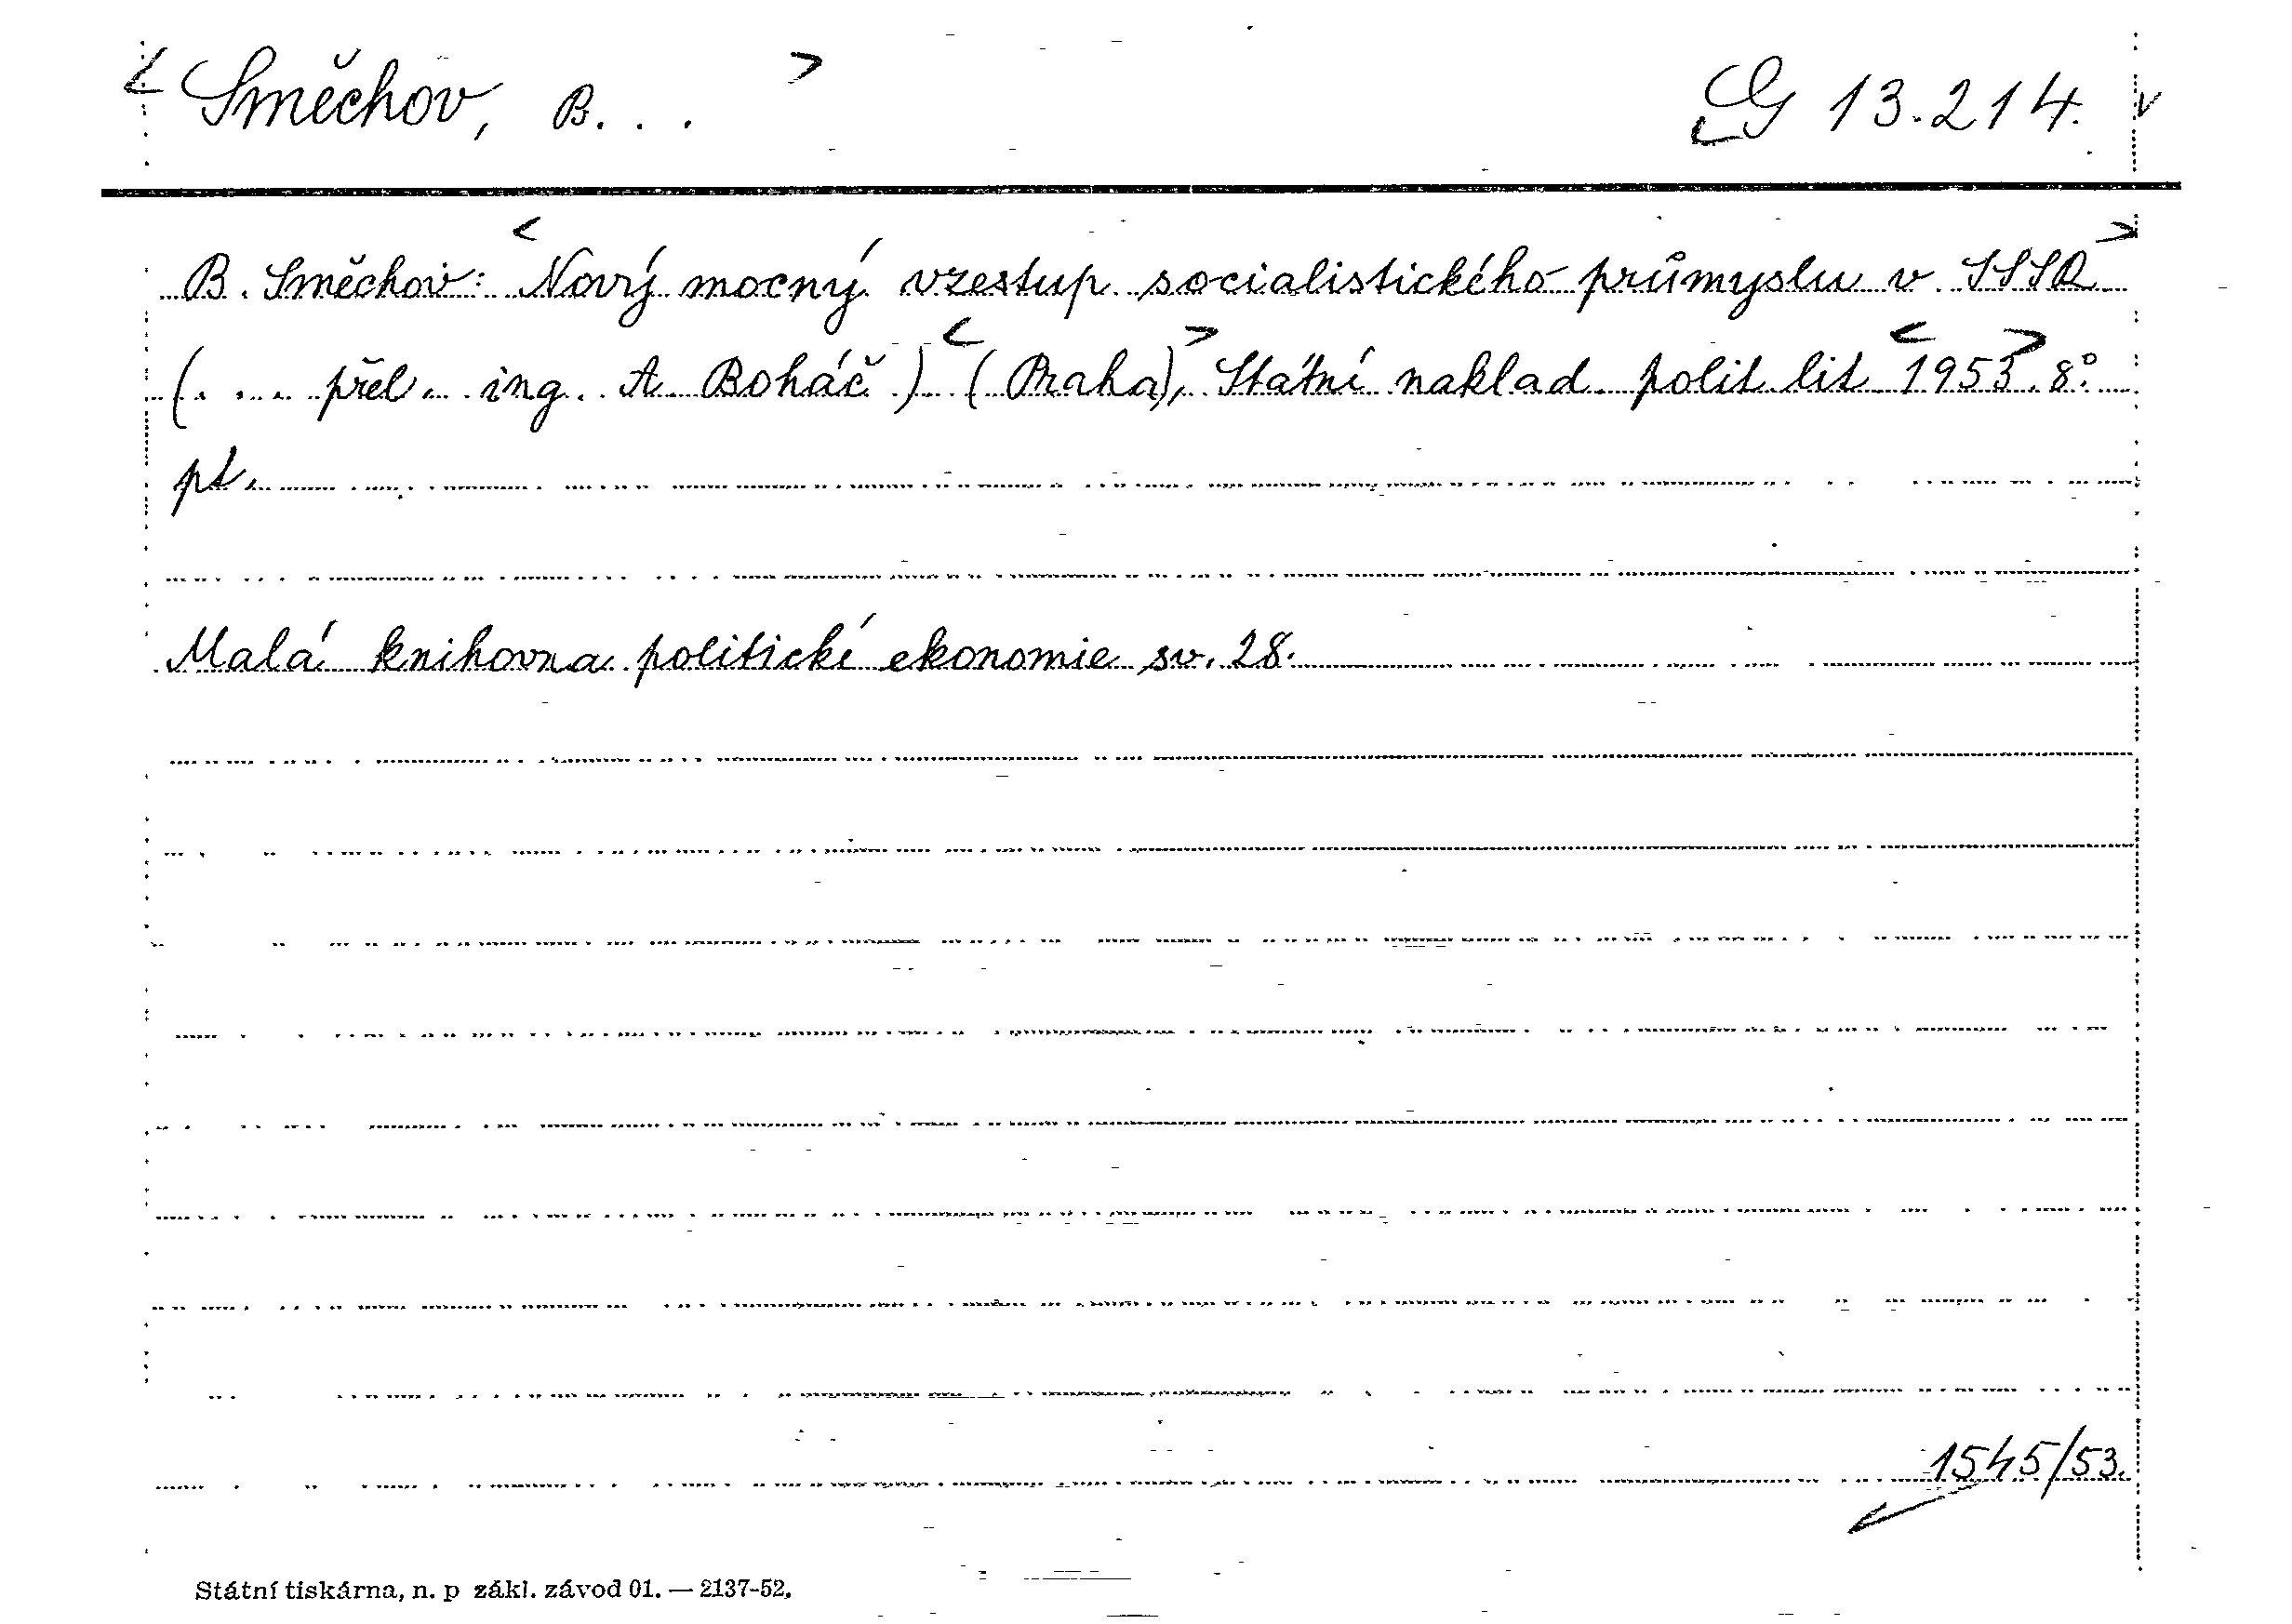 < Směchov, B. . . > G 13.214. v
B. Směchov: < Nový mocný vzestup socialistického průmyslu v SSSR >
(. ... přel. ing. A. Boháč) < (Praha), > Státní naklad. polit. lit < 1953. > 8°.
pt.
Malá knihovna politické ekonomie sv. 28.
1545/53.
Státní tiskárna, n. p zákl. závod 01. — 2137-52.